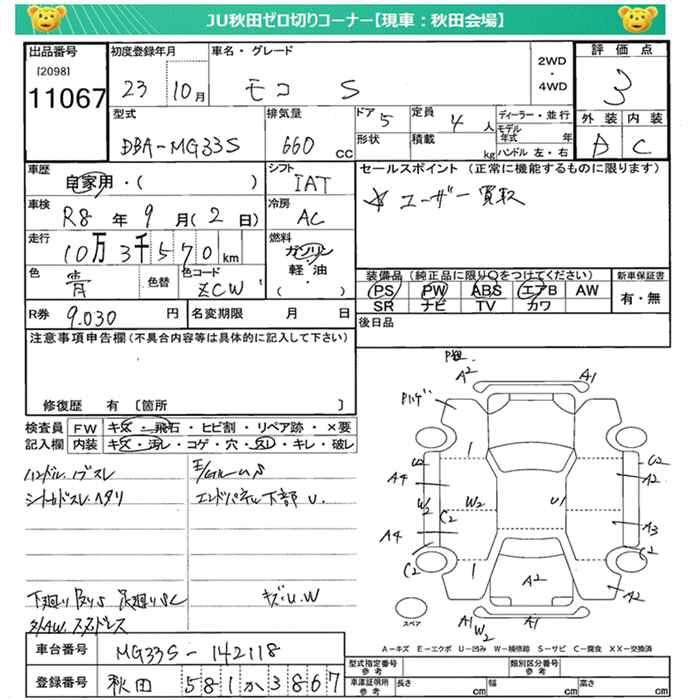 JU秋田ゼロ切りコーナー【現車：秋田会場】
出品番号
[2098]
11067
初度登録年月
23 10月
車名・グレード
モコ S
2WD
・
4WD
評価点
3
型式
DBA-MG33S
排気量
660 cc
ドア
5
形状
定員
4人
積載
kg
ディーラー・並行
モデル年式 年
ハンドル 左・右
外装 内装
D C
車歴
自家用・( )
シフト
IAT
車検
R8年9月(2日)
冷房
AC
走行
10万3千570km
燃料
ガソリン
軽油
・( )
色
青
色替
色コード
ZCW
セールスポイント（正常に機能するものに限ります）
☆ユーザー買取
装備品（純正品に限り○をつけてください）
PS PW ABS エアB AW
SR ナビ TV カワ
新車保証書
有・無
後日品
R券 9.030円
名変期限 月 日
注意事項申告欄（不具合内容等は具体的に記入して下さい）
修復歴 有〔箇所 〕
検査員 FW キズ・飛石・ヒビ割・リペア跡・×要
記入欄 内装 キズ・汚レ・コゲ・穴・スレ・キレ・破レ
ハンドル.ブスレ
シートカドスレ.ヘタリ
エンドパネル下部 U.
下廻り
キズ.U.W
外AW.スタッドレス
A2 A1
1
A4 U2 C2 A2
W2 C2 W2 U1
A4 A3
C2 C2
1 A2 A2
A1 W2 A1
スペア
A－キズ E－エクボ U－凹み W－補修跡 S－サビ C－腐食 XX－交換済
車台番号 MG33S-142118
登録番号 秋田 581か3867
型式指定番号
参考
類別区分番号
参考
車庫証明用
参考
長さ cm
幅 cm
高さ cm